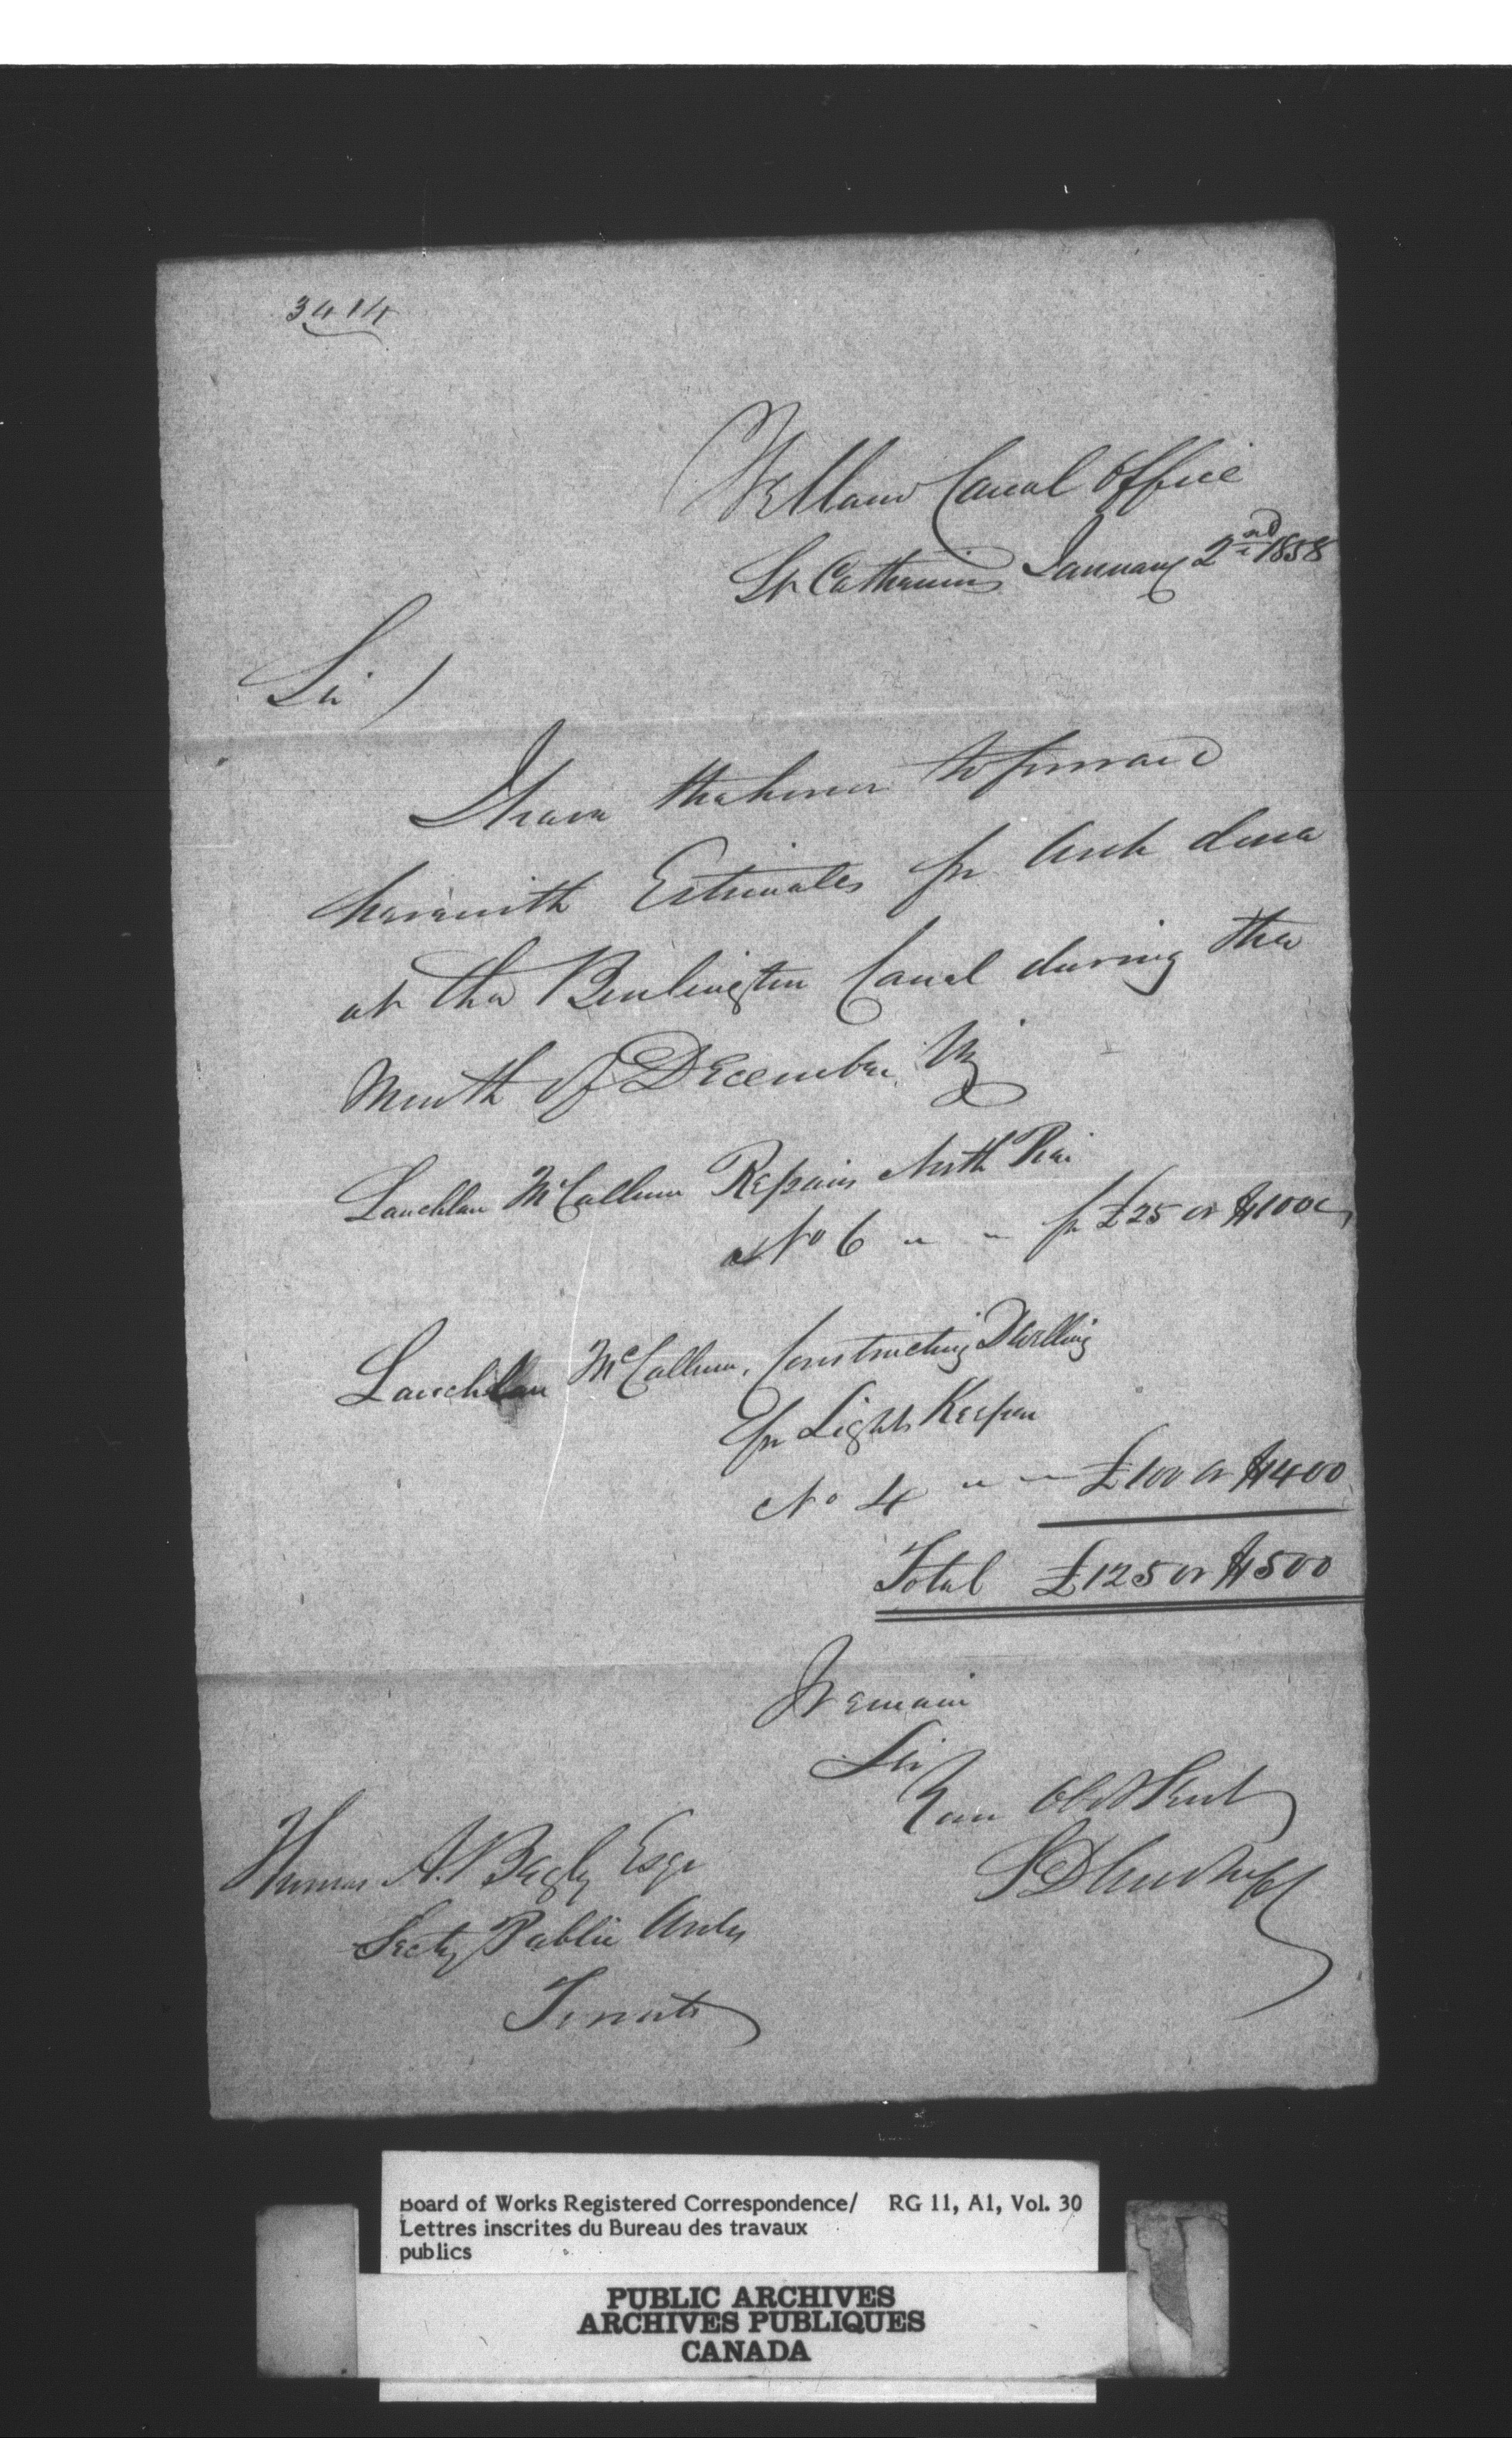 3414
Welland Canal Office
St Catherines January 2nd 1858
Sir /
I have the honor to forward
herewith Estimates for Work done
at the Burlington Canal during the
Month of December Viz
Lauchlan McCallum Repairs North Pier
No 6 " " for £25 or $100
Lauchlan McCallum, Constructing Dwelling
for Light Keeper
No 4 " " £100 or $400
Total £125 or $500
I remain
Sir
Your Obdt Servt
S D Woodruff
Thomas A. Begly Esqr
Secty Public Works
Toronto
Board of Works Registered Correspondence/ RG 11, A1, Vol. 30
Lettres inscrites du Bureau des travaux
publics
PUBLIC ARCHIVES
ARCHIVES PUBLIQUES
CANADA